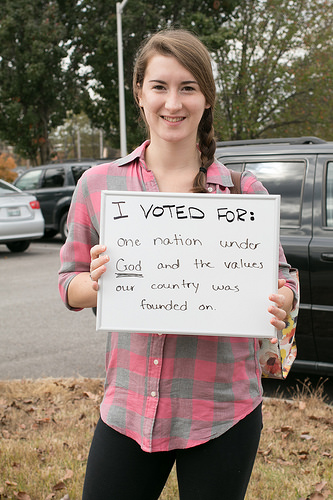 I VOTED FOR:
one nation under
God and the values
our country was
founded on.